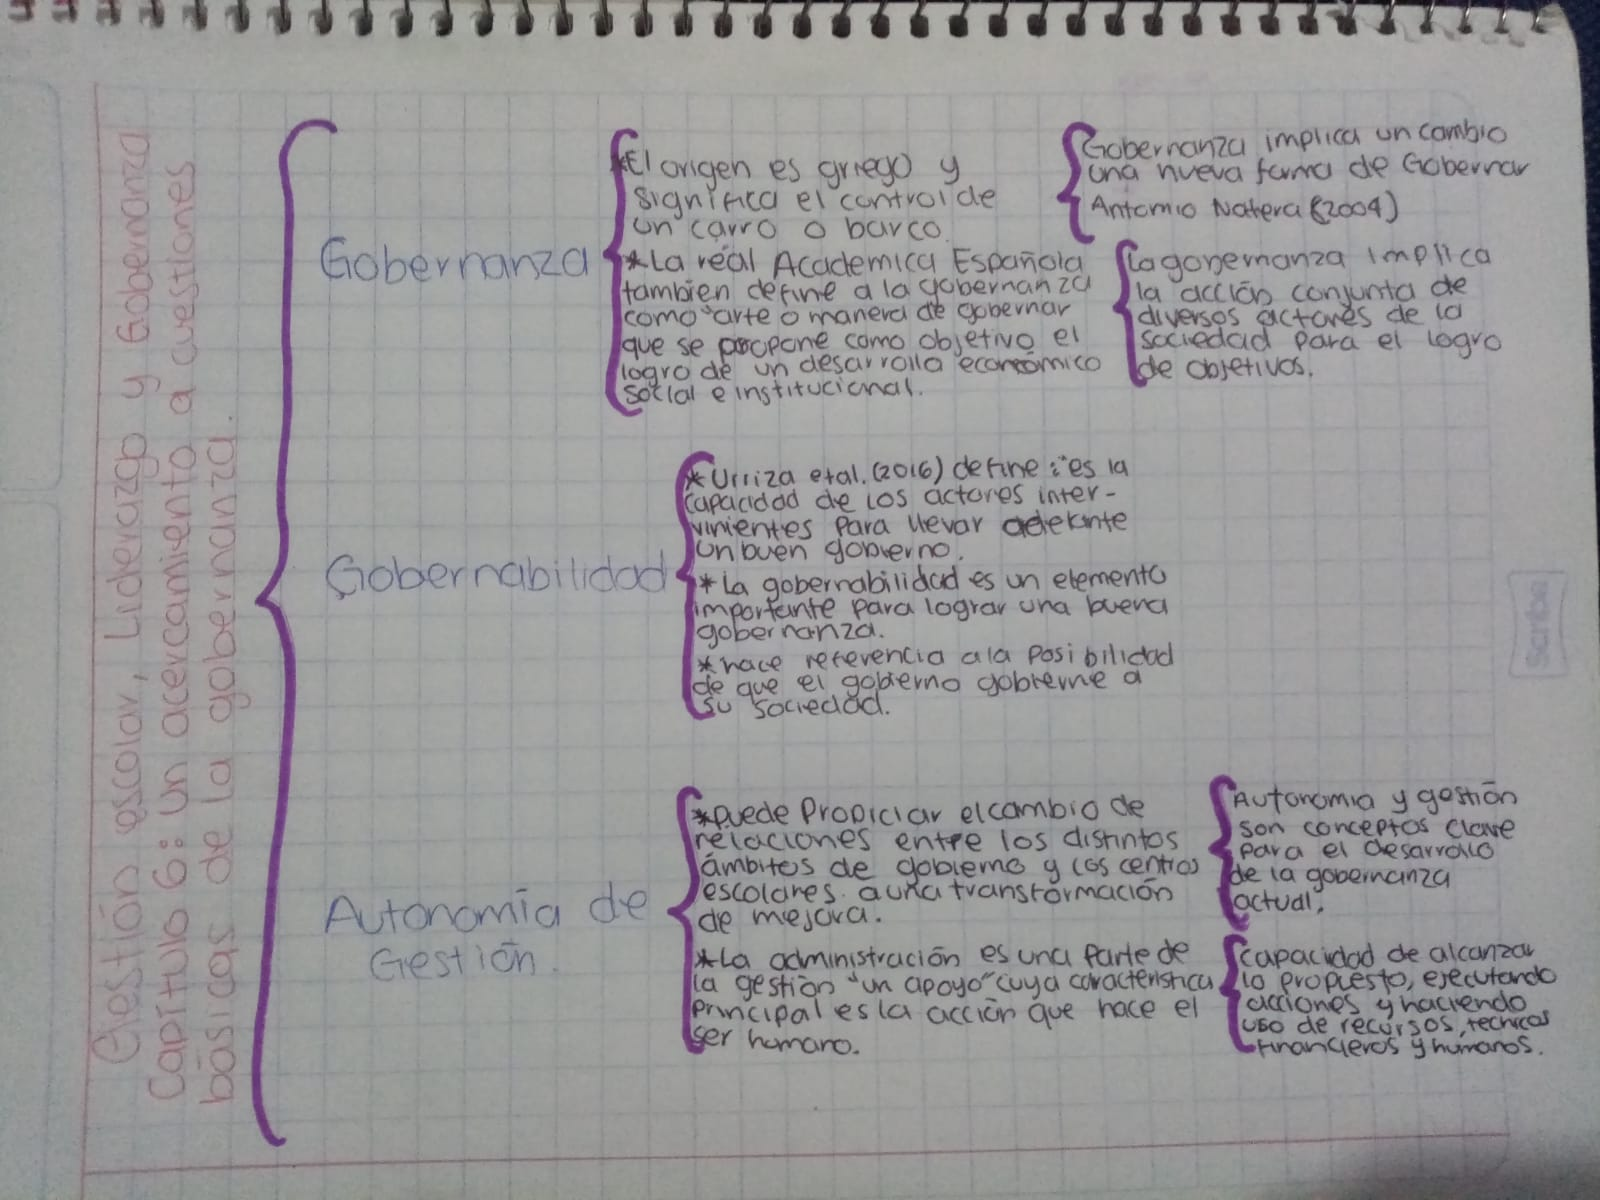 Gestión escolar, Liderazgo y Gobernanza
Capítulo 6: un acercamiento a cuestiones
básicas de la gobernanza.
Gobernanza
*El origen es griego y
significa el control de
un carro o barco.
*La real Academica Española
tambien define a la gobernanza
como "arte o manera de gobernar
que se propone como objetivo el
logro de un desarrollo económico
social e institucional.
Gobernanza implica un cambio
una nueva forma de Gobernar
Antomio Natera (2004)
La gobernanza implica
la acción conjunta de
diversos actores de la
sociedad para el logro
de objetivos.
Gobernabilidad
*Urriza et al. (2016) define: "es la
capacidad de los actores inter-
vinientes para llevar adelante
un buen gobierno.
*La gobernabilidad es un elemento
importante para lograr una buena
gobernanza.
*hace referencia a la posibilidad
de que el gobierno gobierne a
su sociedad.
Autonomía de
Gestión.
*puede propiciar el cambio de
relaciones entre los distintos
ámbitos de gobierno y los centros
escolares. a una transformación
de mejora.
*La administración es una parte de
la gestión "un apoyo" cuya caracteristica
principal es la acción que hace el
ser humano.
Autonomia y gestión
son conceptos clave
para el desarrollo
de la gobernanza
actual.
capacidad de alcanzar
lo propuesto, ejecutando
acciones y haciendo
uso de recursos, tecnicos
financieros y humanos.
Scribe